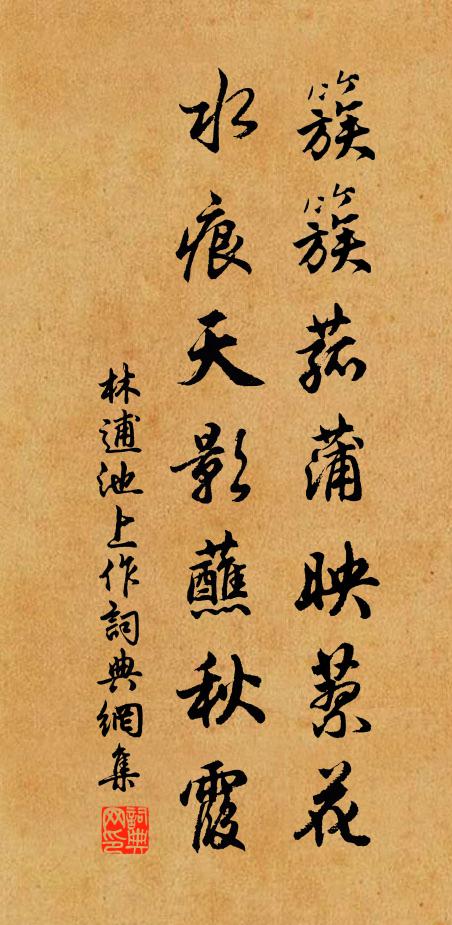 簇簇菰蒲映蓼花
水痕天影蘸秋霞
林逋池上作詞典網集
詞典
网印